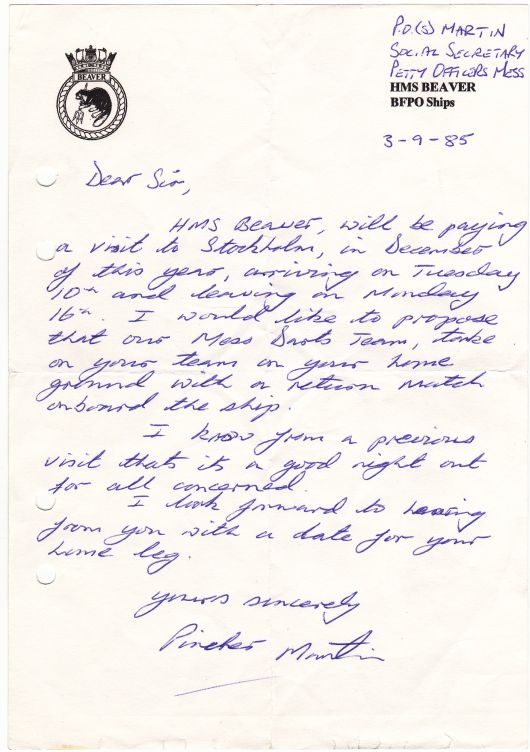 P.O.(S) MARTIN
SOCIAL SECRETARY
PETTY OFFICERS MESS
HMS BEAVER
BFPO Ships
BEAVER
3-9-85
Dear Sir,
HMS Beaver, will be paying
a visit to Stockholm, in December
of this year, arriving on Tuesday
10th and leaving on Monday
16th. I would like to propose
that our Mess Darts Team, take
on your team on your home
ground with a return match
onboard the ship.
I know from a previous
visit thats its a good night out
for all concerned.
I look forward to hearing
from you with a date for your
home leg.
yours sincerely
Pincher Martin